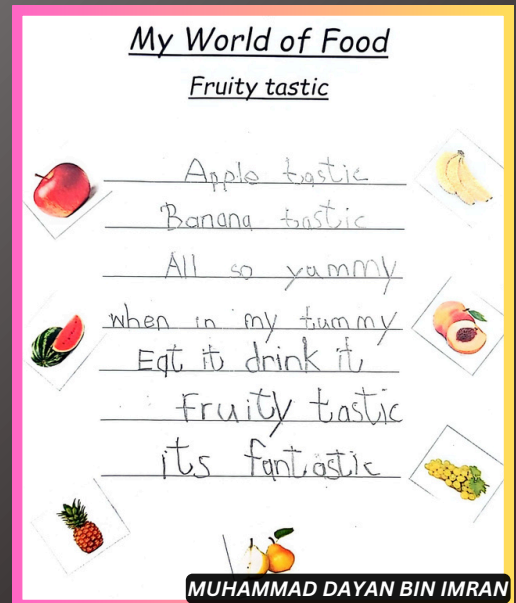 My World of Food
Fruity tastic
Apple tastic
Banana tastic
All so yammy
when in my tummy
Eat it drink it
Fruity tastic
its fantastic
MUHAMMAD DAYAN BIN IMRAN